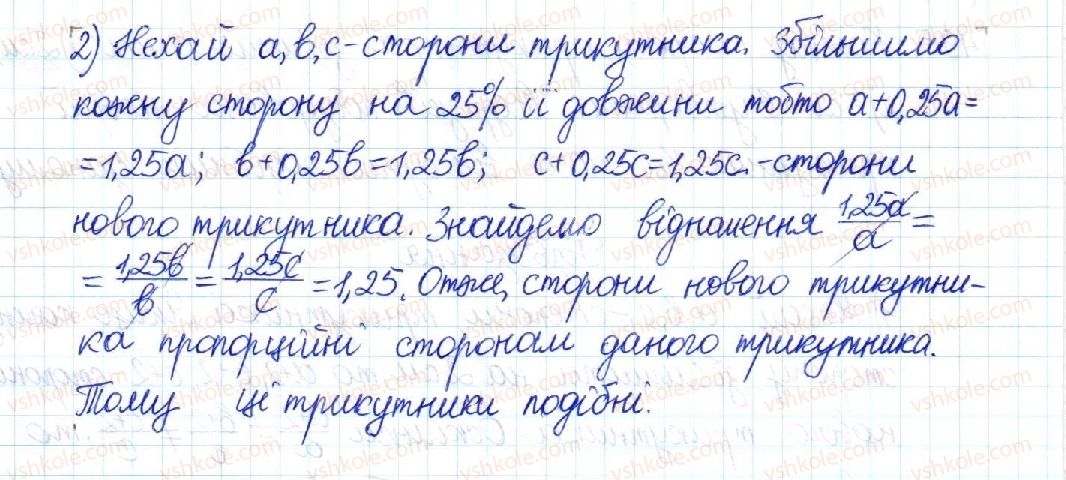 2) Нехай a, b, c - сторони трикутника. Збільшимо
кожну сторону на 25% її довжини тобто a+0,25a=
=1,25a; b+0,25b=1,25b; c+0,25c=1,25c. - сторони
нового трикутника. Знайдемо відношення 1,25a/a =
= 1,25b/b = 1,25c/c = 1,25. Отже, сторони нового трикутни-
ка пропорційні сторонам даного трикутника.
Тому ці трикутники подібні.